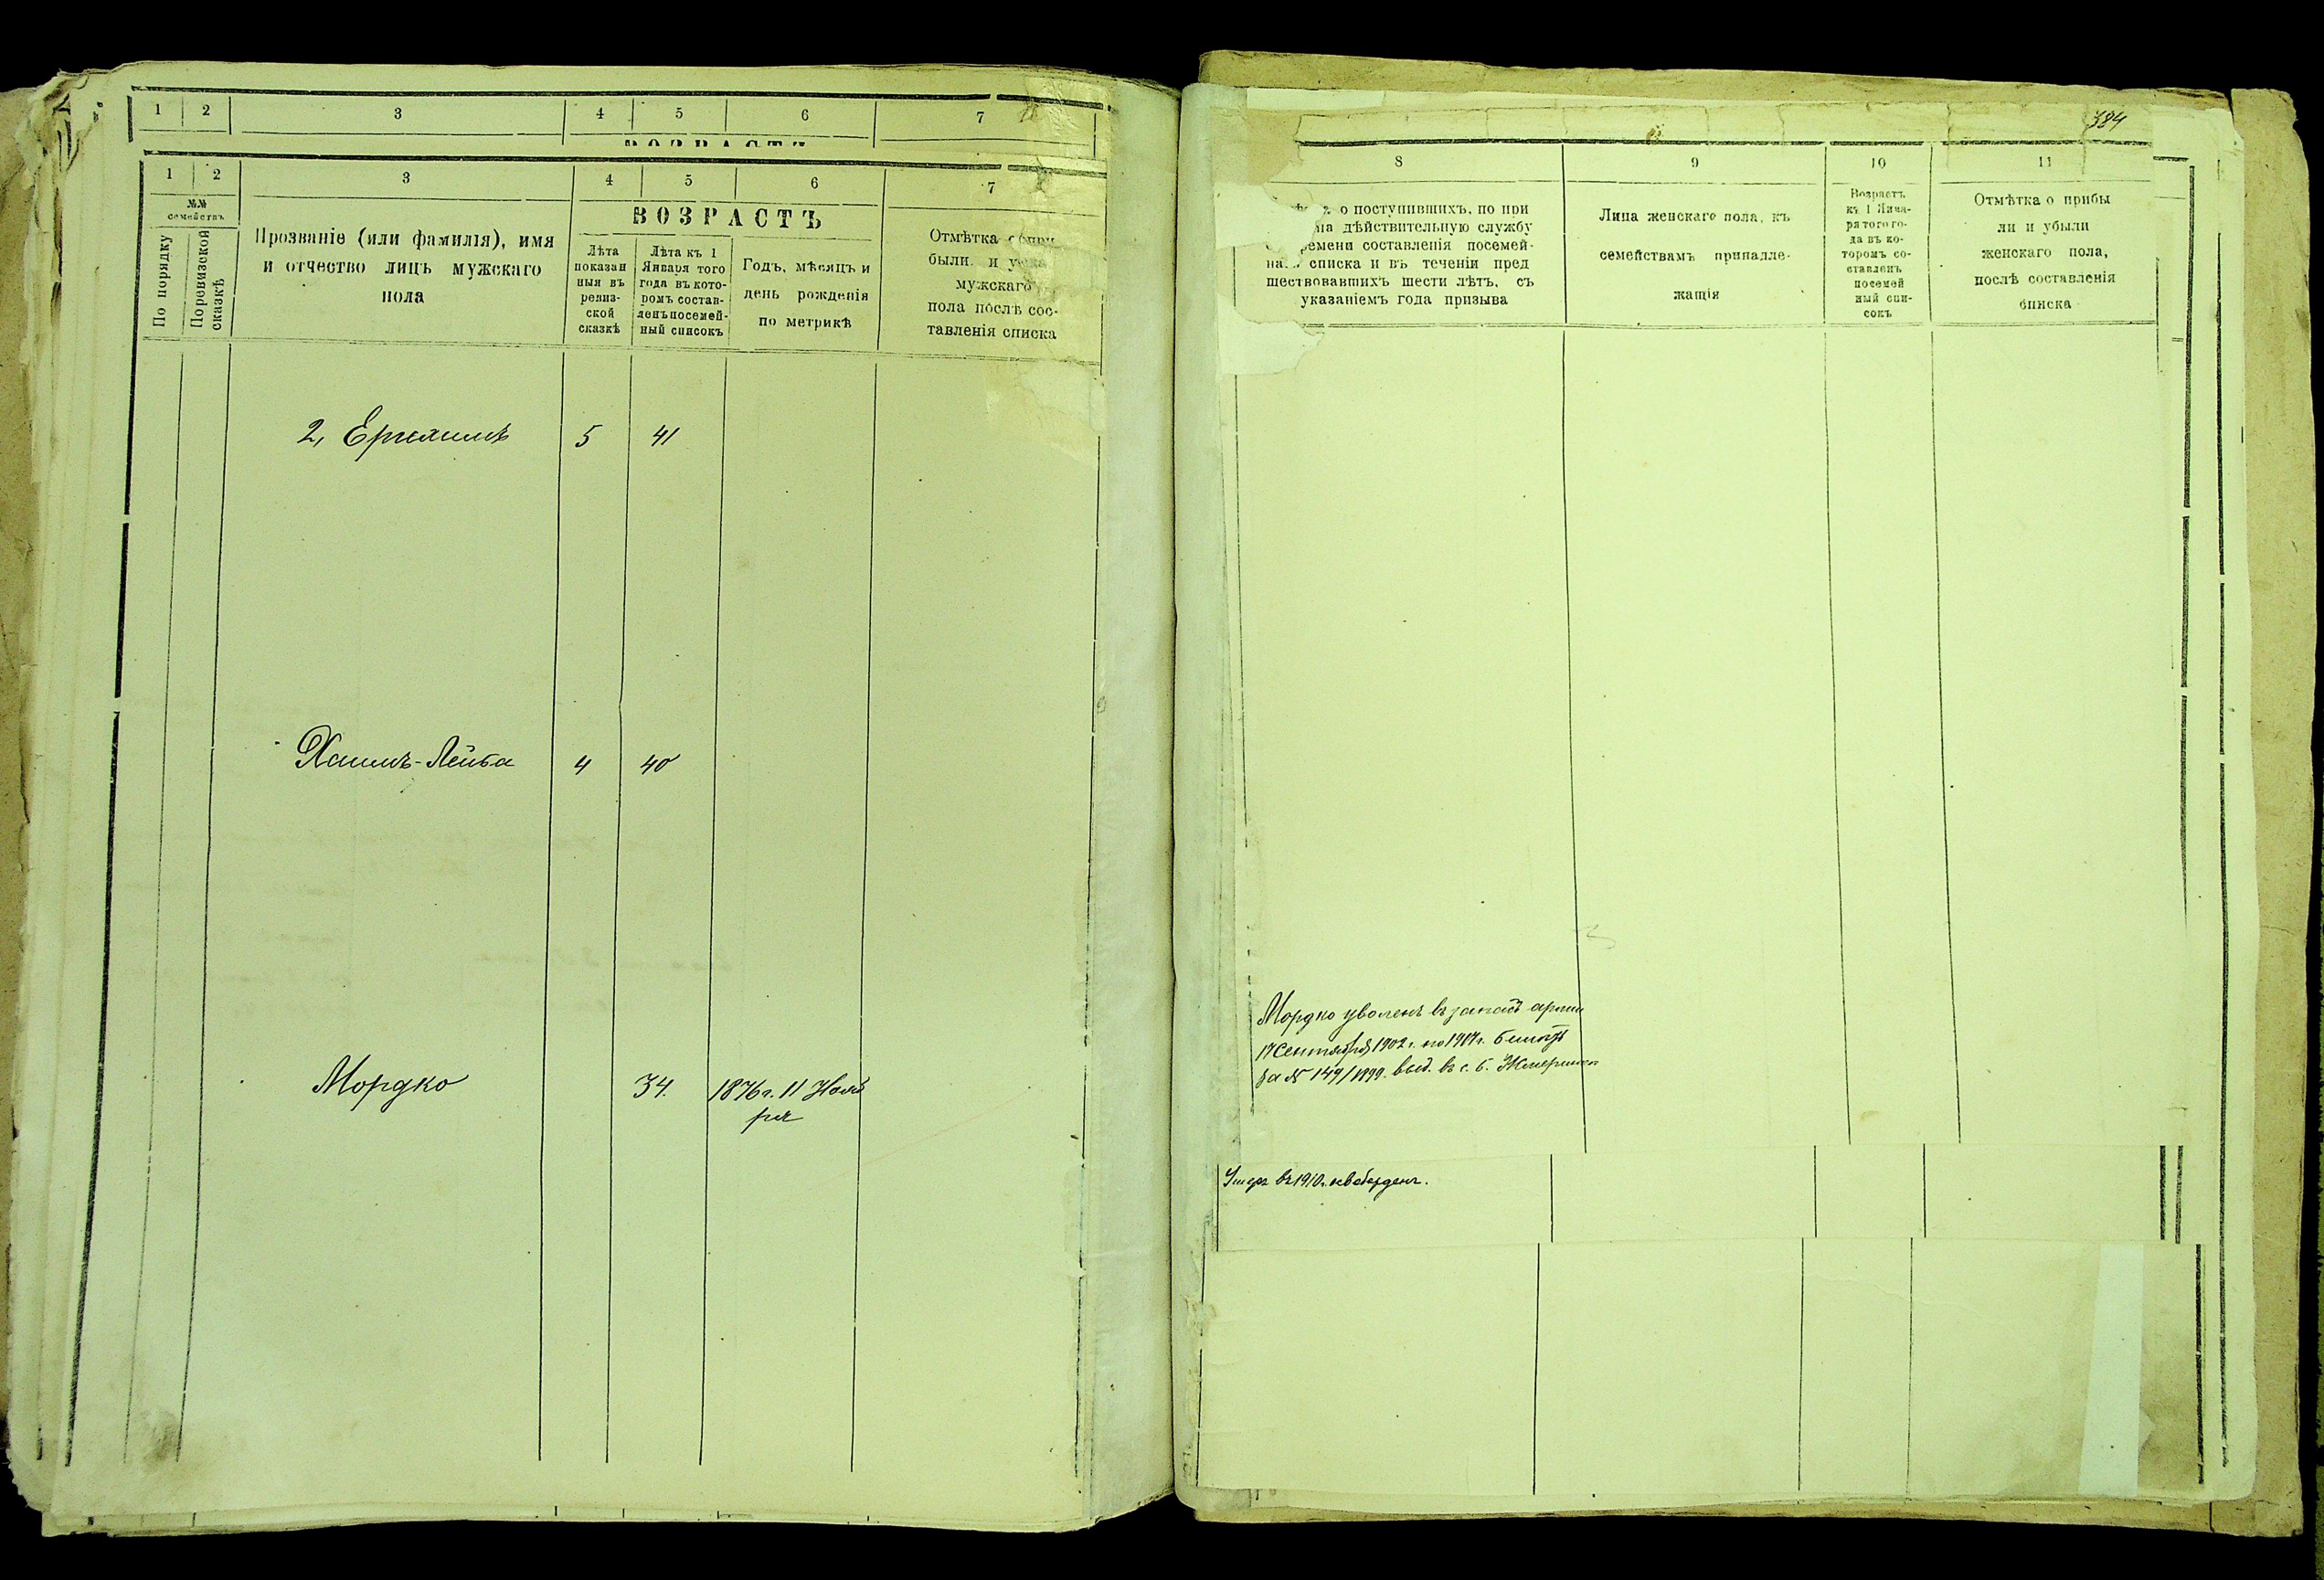 1 2 3 4 5 6 7
ВОЗРАСТЪ
1 2 3 4 5 6 7
№№ семействъ
По порядку
По ревизской сказкѣ
Прозваніе (или фамилія), имя
и отчество лицъ мужскаго
пола
ВОЗРАСТЪ
Лѣта
показан
ныя въ
ревиз-
ской
сказкѣ
Лѣта къ 1
Января того
года въ кото-
ромъ состав-
ленъ посемей-
ный списокъ
Годъ, мѣсяцъ и
день рожденія
по метрикѣ
Отмѣтка
были и
мужскаго
пола послѣ сос-
тавленія списка
2, Ерихимъ 5 41
Хаимъ-Лейба 4 40
Мордко 34. 1876 г. 11 Нояб
ря
384
8 9 10 11
о поступившихъ, по при
на дѣйствительную службу
времени составленія посемей-
списка и въ теченіи пред
шествовавшихъ шести лѣтъ, съ
указаніемъ года призыва
Лица женскаго пола, къ
семействамъ принадле-
жащія
Возрастъ
къ 1 Янва-
ря того го-
да въ ко-
торомъ со-
ставленъ
посемей
ный спи-
сокъ
Отмѣтка о прибы
ли и убыли
женскаго пола,
послѣ составленія
списка
Мордко уволенъ въ запасъ арміи
17 Сентября 1902 г. по 1917 г. билетъ
за № 149/1899. выд. въ с. б.
Умеръ въ 1910 г.